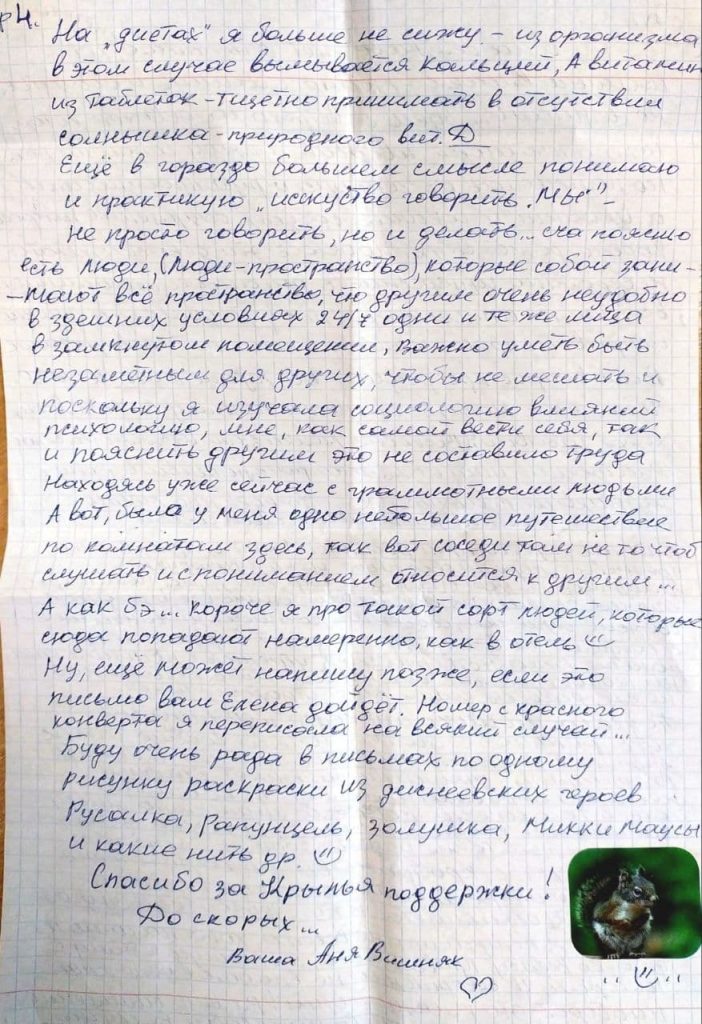 р4.
На „диетах" я больше не сижу - из организма
в этом случае вымывается кальций, А витамин
из таблеток - тщетно принимать в отсутствии
солнышка - природного вит. Д
Ещё в гораздо большем смысле понимаю
и практикую „исскуство говорить „МЫ"" -
не просто говорить, но и делать... сча поясню
есть люди, (люди-пространство), которые собой зани-
-мают всё пространство, что другим очень неудобно
в здешних условиях 24/7 одни и те же лица
в замкнутом помещении, важно уметь быть
незаметным для других, чтобы не мешать и
поскольку я изучала социологию влияний
психологию, мне, как самой вести себя, так
и пояснить другим это не составило труда
Находясь уже сейчас с граммотными людьми
А вот, было у меня одно небольшое путешествие
по комнатам здесь, так вот соседи там не то чтоб
слушать и с пониманием относится к другим...
А как бэ... короче я про такой сорт людей, которые
сюда попадают намеренно, как в отель
Ну, ещё может напишу позже, если это
письмо вам Елена дойдёт. Номер с красного
конверта я переписала на всякий случай...
Буду очень рада в письмах по одному
рисунку раскраски из диснеевских героев
Русалка, Рапунцель, Золушка, Микки Маусы
и какие нить др.
Спасибо за Крылья поддержки!
До скорых...
Ваша Аня Вишняк